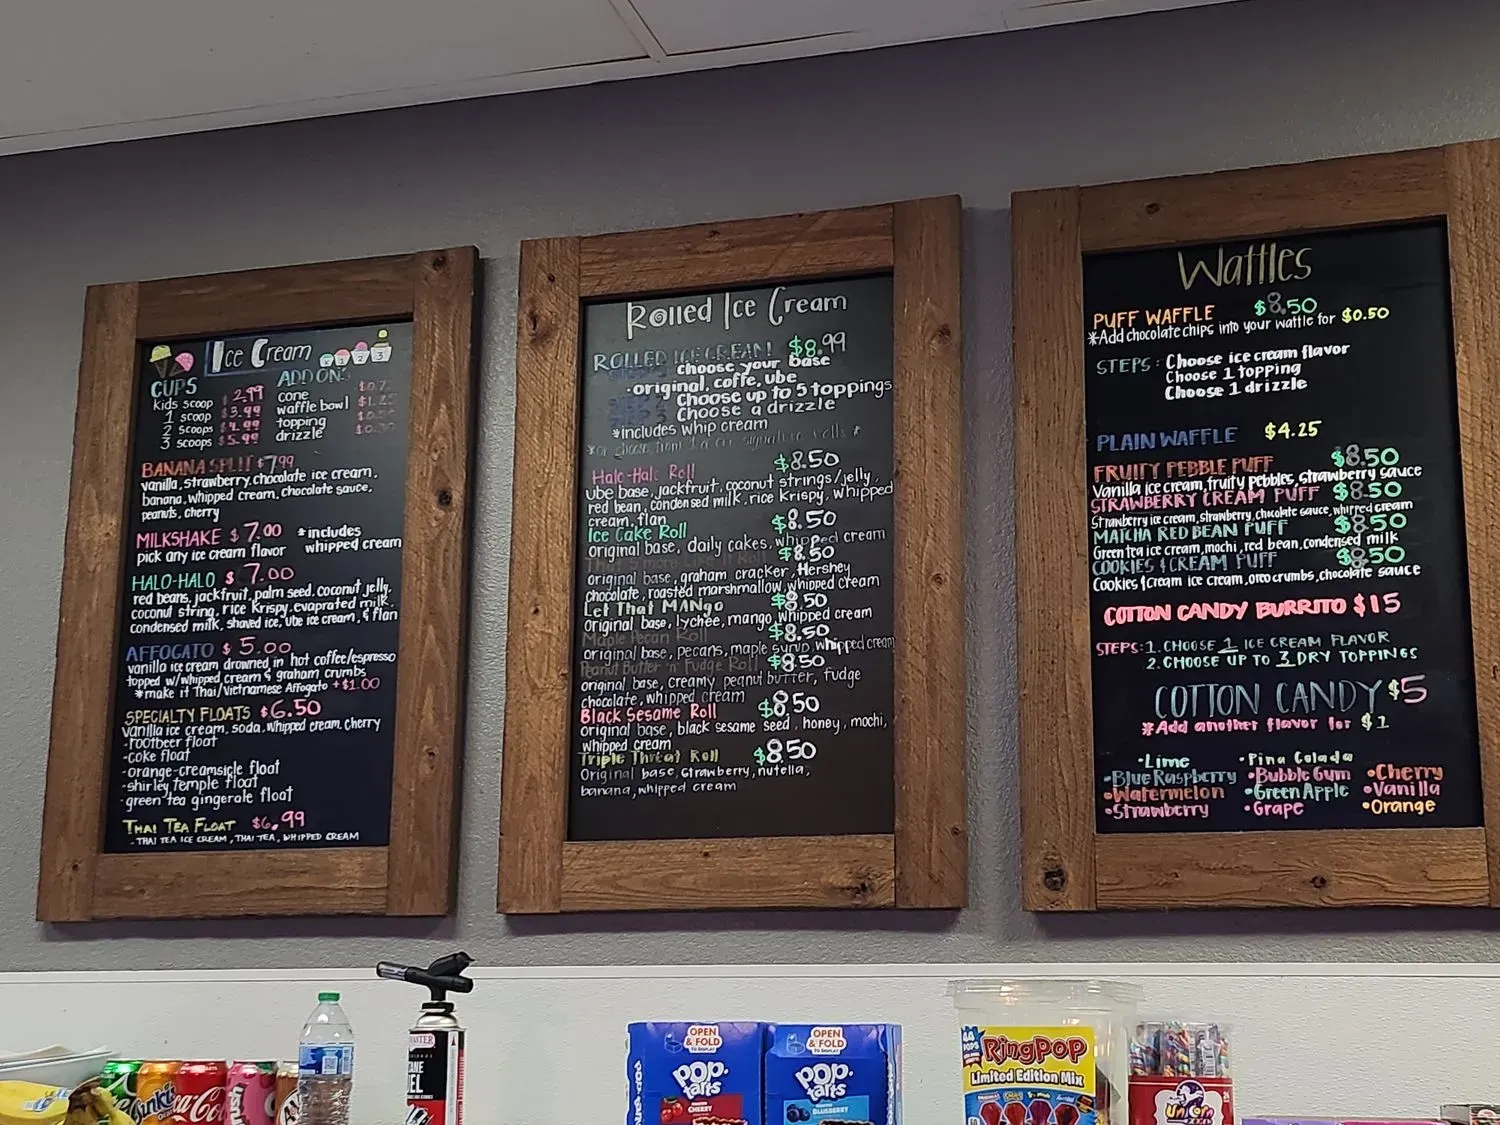 Ice Cream
1 2 3
CUPS
kids scoop 2.99
1 scoop $3.99
2 scoops $4.99
3 scoops $5.99
ADD ONS
cone
waffle bowl
topping
drizzle
BANANA SPLIT $7.99
vanilla, strawberry, chocolate ice cream,
banana, whipped cream, chocolate sauce,
peanuts, cherry
MILKSHAKE $7.00 *includes
pick any ice cream flavor whipped cream
HALO-HALO $7.00
red beans, jackfruit, palm seed, coconut jelly,
coconut string, rice Krispy, evaprated milk,
condensed milk, shaved ice, ube ice cream, & flan
AFFOGATO $5.00
vanilla ice cream drowned in hot coffee/espresso
topped w/whipped cream & graham crumbs
*make it Thai/Vietnamese Affogato +$1.00
SPECIALTY FLOATS $6.50
vanilla ice cream, soda, whipped cream, cherry
-rootbeer float
-coke float
-orange-creamsicle float
-shirley temple float
-green tea gingerale float
THAI TEA FLOAT $6.99
- THAI TEA ICE CREAM, THAI TEA, WHIPPED CREAM
Rolled Ice Cream
ROLLED ICE CREAM $8.99
choose your base
·original, coffe, ube
Choose up to 5 toppings
Choose a drizzle
*Includes whip cream
*or choose from signature rolls*
Halo-Halo Roll $8.50
Ube base, jackfruit, coconut strings/jelly,
red bean, condensed milk, rice Krispy, whipped
cream, flan
Ice Cake Roll $8.50
Original base, daily cakes, whipped cream
$8.50
Original base, graham cracker, Hershey
chocolate, roasted marshmallow, whipped cream
Let That MANgo $8.50
Original base, lychee, mango, whipped cream
Maple Pecan Roll $8.50
Original base, pecans, maple syrup, whipped cream
Peanut Butter 'n' Fudge Roll $8.50
original base, creamy peanut butter, fudge
chocolate, whipped cream
Black Sesame Roll $8.50
Original base, black sesame seed, honey, mochi,
whipped cream
Triple Threat Roll $8.50
Original base, strawberry, nutella,
banana, whipped cream
Waffles
PUFF WAFFLE $8.50
*Add chocolate chips into your waffle for $0.50
STEPS: Choose ice cream flavor
Choose 1 topping
Choose 1 drizzle
PLAIN WAFFLE $4.25
FRUITY PEBBLE PUFF $8.50
Vanilla ice cream, fruity pebbles, strawberry sauce
STRAWBERRY CREAM PUFF $8.50
Strawberry ice cream, strawberry, chocolate sauce, whipped cream
MATCHA RED BEAN PUFF $8.50
Green tea ice cream, mochi, red bean, condensed milk
COOKIES & CREAM PUFF $8.50
Cookies & cream ice cream, oreo crumbs, chocolate sauce
COTTON CANDY BURRITO $15
STEPS: 1. CHOOSE 1 ICE CREAM FLAVOR
2. CHOOSE UP TO 3 DRY TOPPINGS
COTTON CANDY $5
*Add another flavor for $1
·Lime ·Pina Colada
·Blue Raspberry ·Bubble Gum ·Cherry
·Watermelon ·Green Apple ·Vanilla
·Strawberry ·Grape ·Orange
OPEN & FOLD
TO DISPLAY
pop·tarts
CHERRY
OPEN & FOLD
TO DISPLAY
pop·tarts
BLUEBERRY
44
RingPop
Limited Edition Mix
Unicorn
Coca-Cola